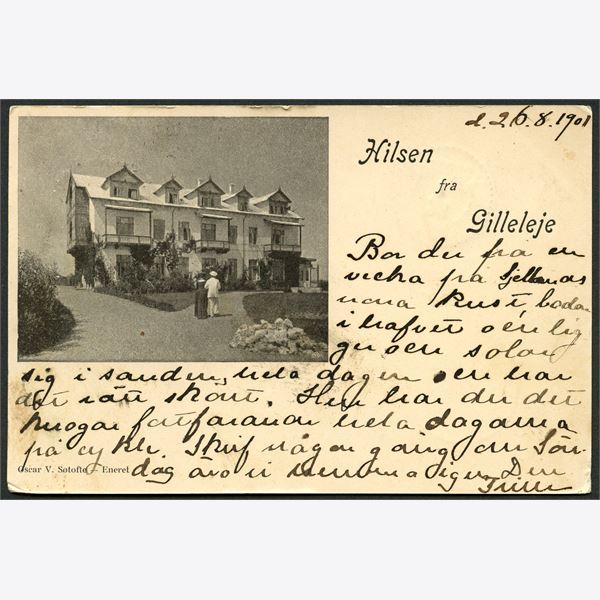 d. 26.8.1901
Hilsen
fra
Gilleleje
Bor du på en
vecka på Sjellands
norra kust, badar
i hafvet och lig
ger och solar
sig i sanden hela dagen och har
det rätt skönt. Hur har du det
fortfarande hela dagarna
på cykle. Skrif någon gång om Sön
dag äro vi hemma igen Din
Oscar V. Søtofte Eneret